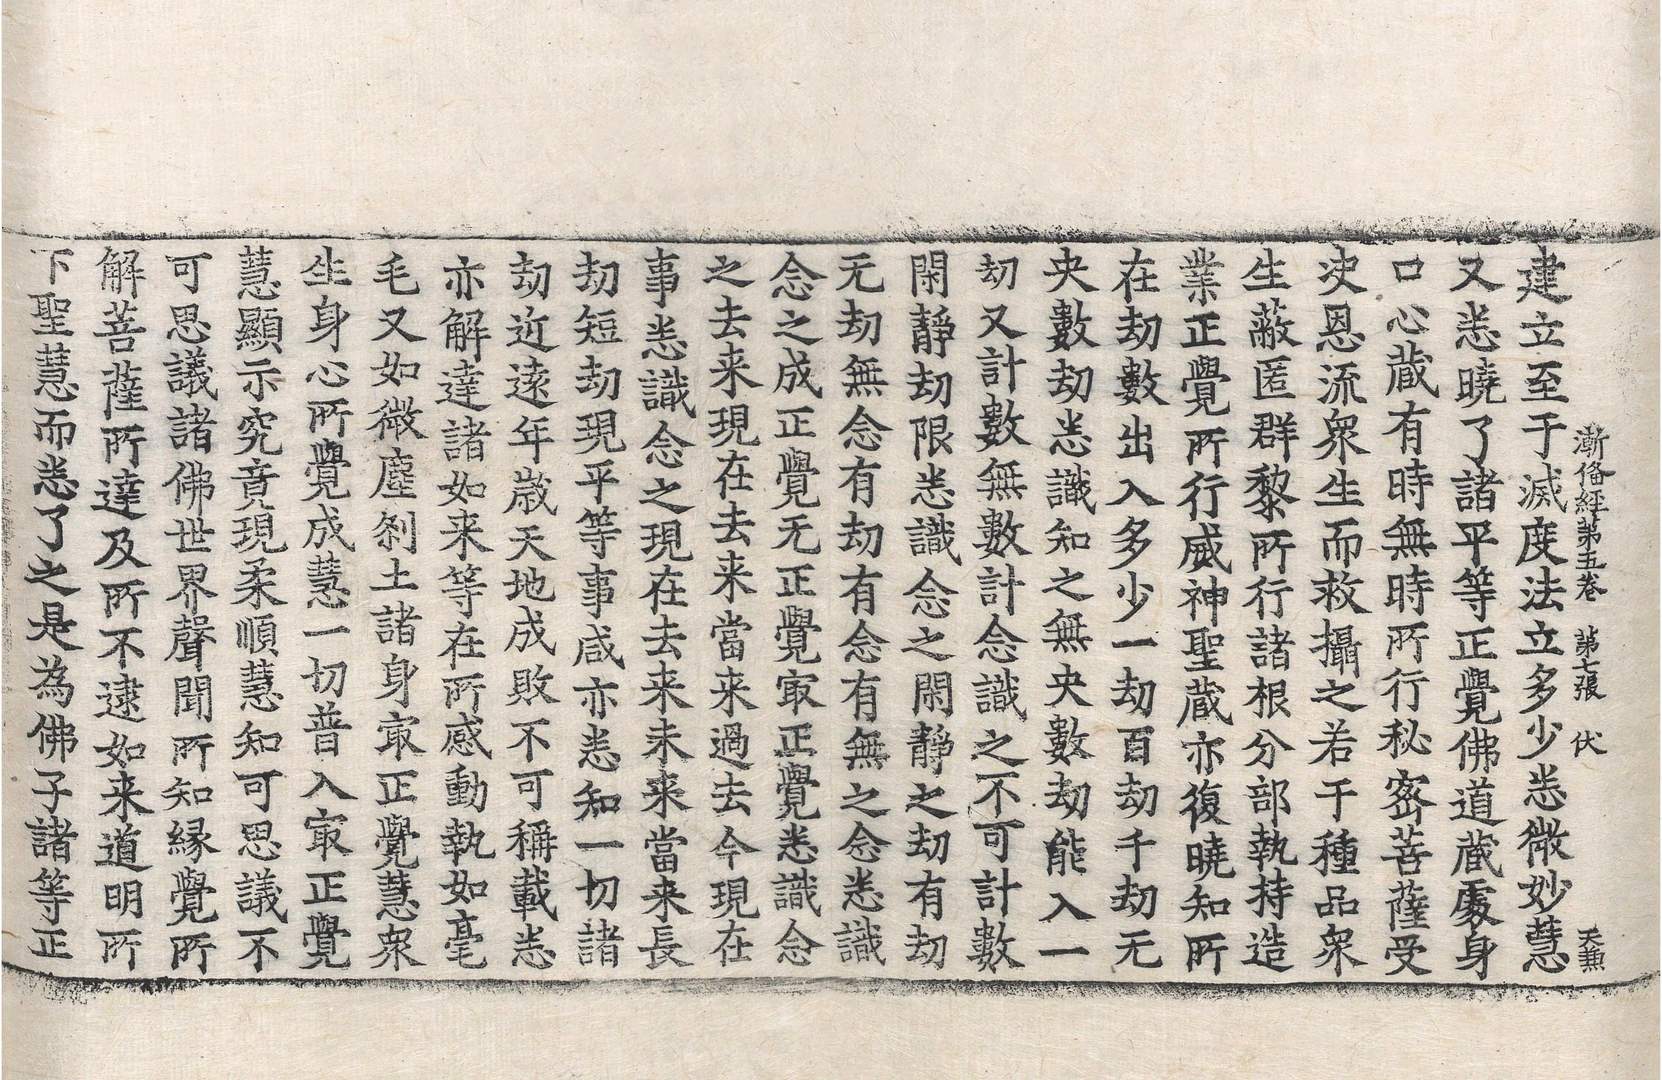 漸俻經第五卷 第七張 伏 天兼
建立至于滅度法立多少悉微妙慧
又悉曉了諸平等正覺佛道蔵處身
口心蔵有時無時所行秘密菩薩受
决恩流衆生而救攝之若干種品衆
生蔽匿群黎所行諸根分部執持造
業正覺所行威神聖蔵亦復曉知所
在劫數出入多少一劫百劫千劫无
央數劫悉識知之無央數劫能入一
劫又計數無數計念識之不可計數
閑靜劫限悉識念之閑靜之劫有劫
无劫無念有劫有念有無之念悉識
念之成正覺无正覺㝡正覺悉識念
之去来現在去来當来過去今現在
事悉識念之現在去来未来當来長
劫短劫現平等事咸亦悉知一切諸
劫近遠年歲天地成敗不可稱載悉
亦解達諸如来等在所感動執如毫
毛又如微塵刹土諸身㝡正覺慧衆
生身心所覺成慧一切普入㝡正覺
慧顯示究竟現柔順慧知可思議不
可思議諸佛世界聲聞所知縁覺所
解菩薩所達及所不逮如来道明所
下聖慧而悉了之是為佛子諸等正